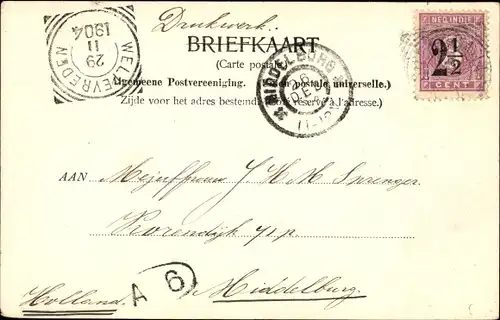 Drukwerk.
BRIEFKAART
(Carte postale)
Algemeene Postvereeniging. (Union postale universelle.)
Zijde voor het adres bestemd. (Côté réservé à l'adresse.)
WELTEVREDEN
29
11
1904
MIDDELBURG
26 DEC
11-12V
NED-INDIË
2½
CENT
AAN Mejuffrouw J H M Springer
Noordendijk
Middelburg.
Holland
A 6